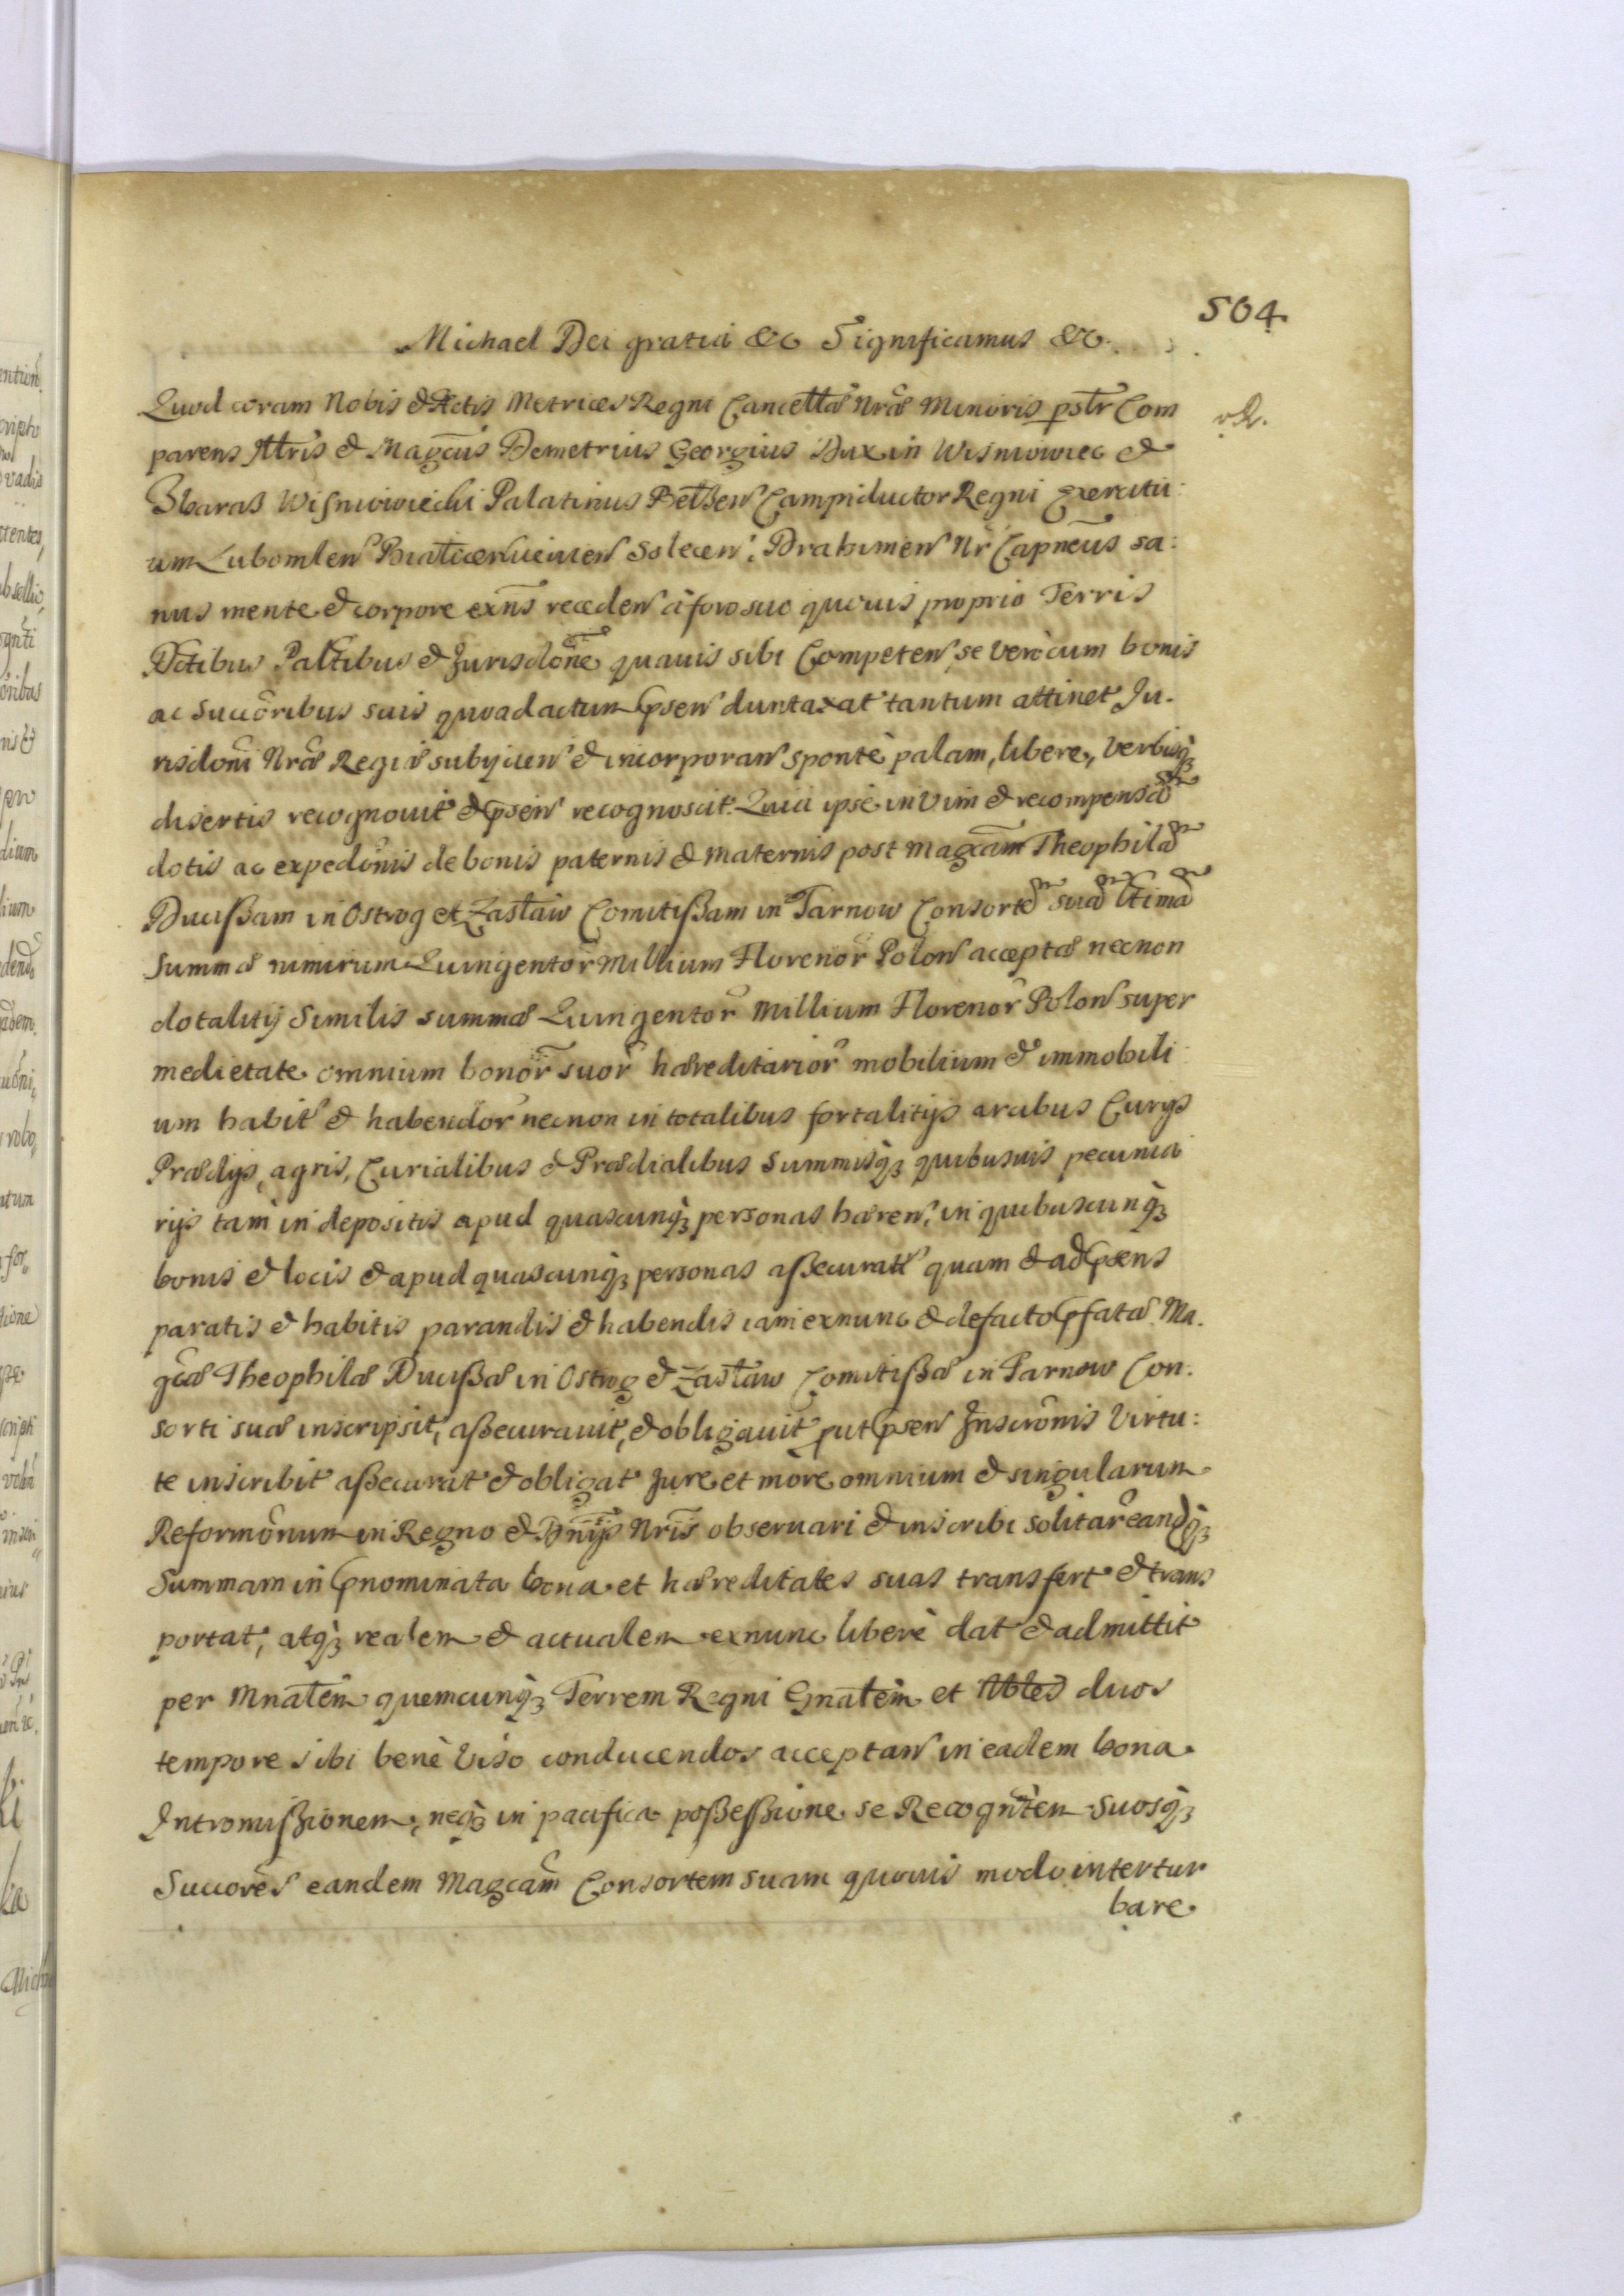 504.
Michael Dei gratia &c Significamus &c.
Quod coram Nobis & Actis Metrices Regni Cancellae Nrae Minoris pstr Com
parens Illris & Magcus Demetrius Georgius Dux in Wisniowiec &
Zbaras Wisniowiecki Palatinus Belzen Campiductor Regni Exercitu:
um Lubomlen Solecen, Drahimen Nr Capneus sa:
nus mente & corpore exns receden à foro suo quovis proprio Terris
Dctibus Paltibus & Jurisdone quavis sibi Competen se verò cum bonis
ac Succoribus suis quoad actum psen duntaxat tantum attinet Ju.
risdoni Nrae Regiae subijcien & incorporan sponte palam, libere, verbisq3
disertis recognovit & psen recognoscit. Quia ipse in vim & recompensã
dotis ac expedonis de bonis paternis & maternis post Magcam Theophilã
Ducißam in Ostrog et Zaslaw Comitißam in Tarnow Consortẽ suã ltimã
Summae nimirum Quingentor Millium Florenor Polon acceptae necnon
dotalitij Similis summae Quingentor Millium Florenor Polon super
medietate omnium bonor suor haereditarior mobilium & immobili:
um habit & habendor necnon in totalibus fortalitijs arcibus Curijs
Praedijs, agris, Curialibus & Praedialibus Summisq3 quibusvis pecunia
rijs tam in depositis apud quascunq3 personas haeren, in quibuscunq3
bonis & locis & apud quascunq3 personas aßecurat quam & ad psens
paratis & habitis parandis & habendis iam exnunc & de facto pfatae Ma.
gcae Theophilae Ducißae in Ostrog & Zaslaw Comitißae in Tarnow Con.
sorti suae inscripsit, aßecuravit, & obligavit put psen Inscronis Virtu:
te inscribit aßecurat & obligat Jure et more omnium & singularum
Reformonum in Regno & Dnijs Nris observari & inscribi solitar eandq3
Summam in pnominata bona et haereditates suas transfert & trans
portat, atq3 realem & actualem exnunc liberè dat & admittit
per Mnalem quemcunq3 Terrem Regni Gnalem et Nbles duos
tempore sibi bene viso conducendos acceptan in eadem bona
Intromißionem, neq3 in pacifica poßeßione se Recogntem Suosq3
Succores eandem Magcam Consortem suam quovis modo intertur
bare.